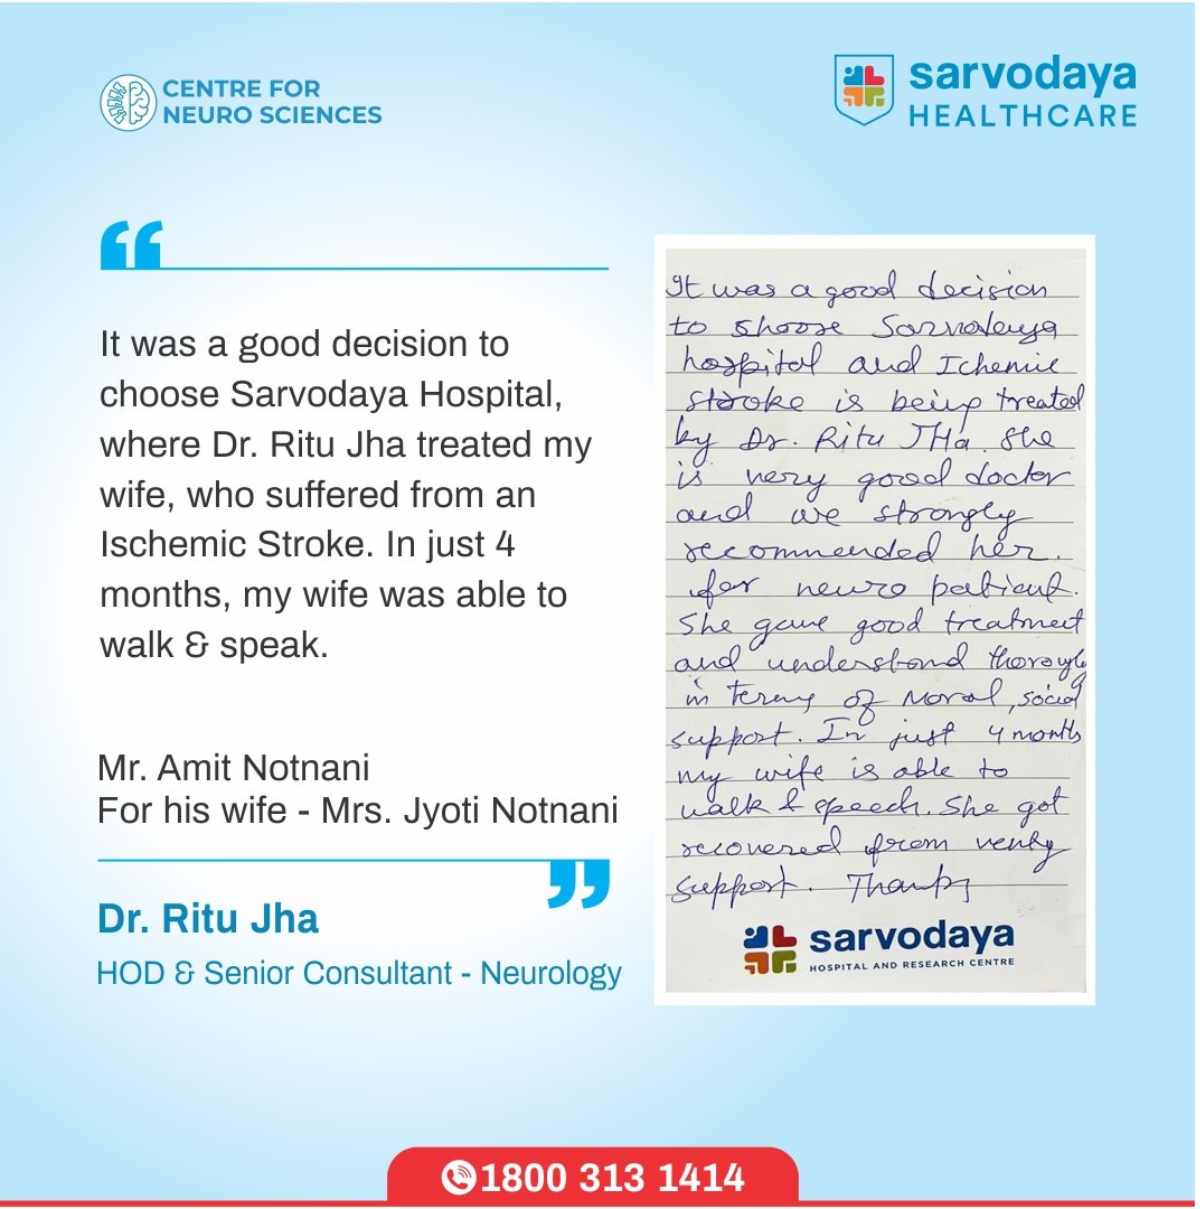 CENTRE FOR
NEURO SCIENCES
sarvodaya
HEALTHCARE
“
It was a good decision to
choose Sarvodaya Hospital,
where Dr. Ritu Jha treated my
wife, who suffered from an
Ischemic Stroke. In just 4
months, my wife was able to
walk & speak.
Mr. Amit Notnani
For his wife - Mrs. Jyoti Notnani
”
Dr. Ritu Jha
HOD & Senior Consultant - Neurology
It was a good decision
to shoose Sarvodaya
hospital and Ichemic
stroke is being treated
by Dr. Ritu JHa. She
is very good doctor
and we strongly
recommended her.
for neuro patient.
She gave good treatment
and understand
in terms of Moral, social
support. In just 4 months
my wife is able to
walk & speech. She got
recovered from
support. Thanks
sarvodaya
HOSPITAL AND RESEARCH CENTRE
1800 313 1414